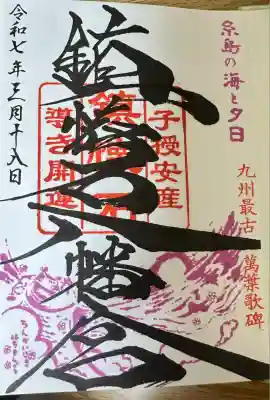 糸島の海と夕日
九州最古 萬葉歌碑
子授安産
鎮懐石
導き開運
鎮懐石八幡宮
令和七年三月十八日